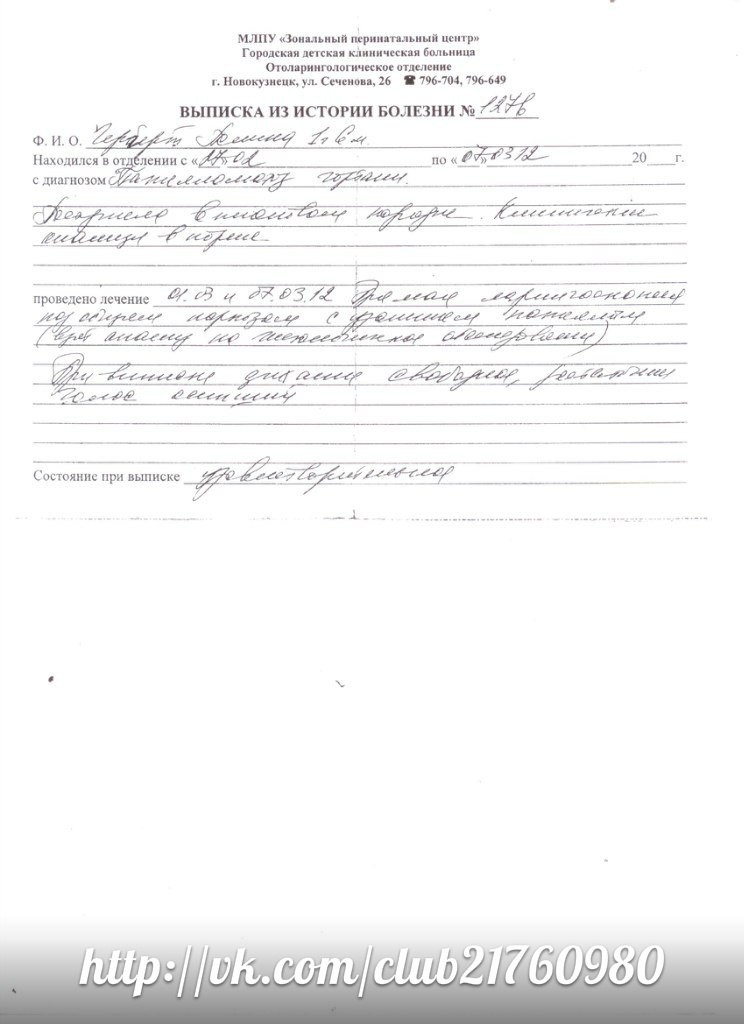 МЛПУ «Зональный перинатальный центр»
Городская детская клиническая больница
Отоларингологическое отделение
г. Новокузнецк, ул. Сеченова, 26 ☎ 796-704, 796-649
ВЫПИСКА ИЗ ИСТОРИИ БОЛЕЗНИ №
Ф. И. О.
Находился в отделении с «27» 02 по «07» 03 12 20 г.
с диагнозом Папилломатоз гортани.
Поступила в плановом порядке. Клинические
анализы в норме
проведено лечение 01.03 и 07.03.12 Прямая ларингоскопия
под общим наркозом с удалением папиллом
При выписке дыхание свободное,
голос осипший
Состояние при выписке удовлетворительное
http://vk.com/club21760980